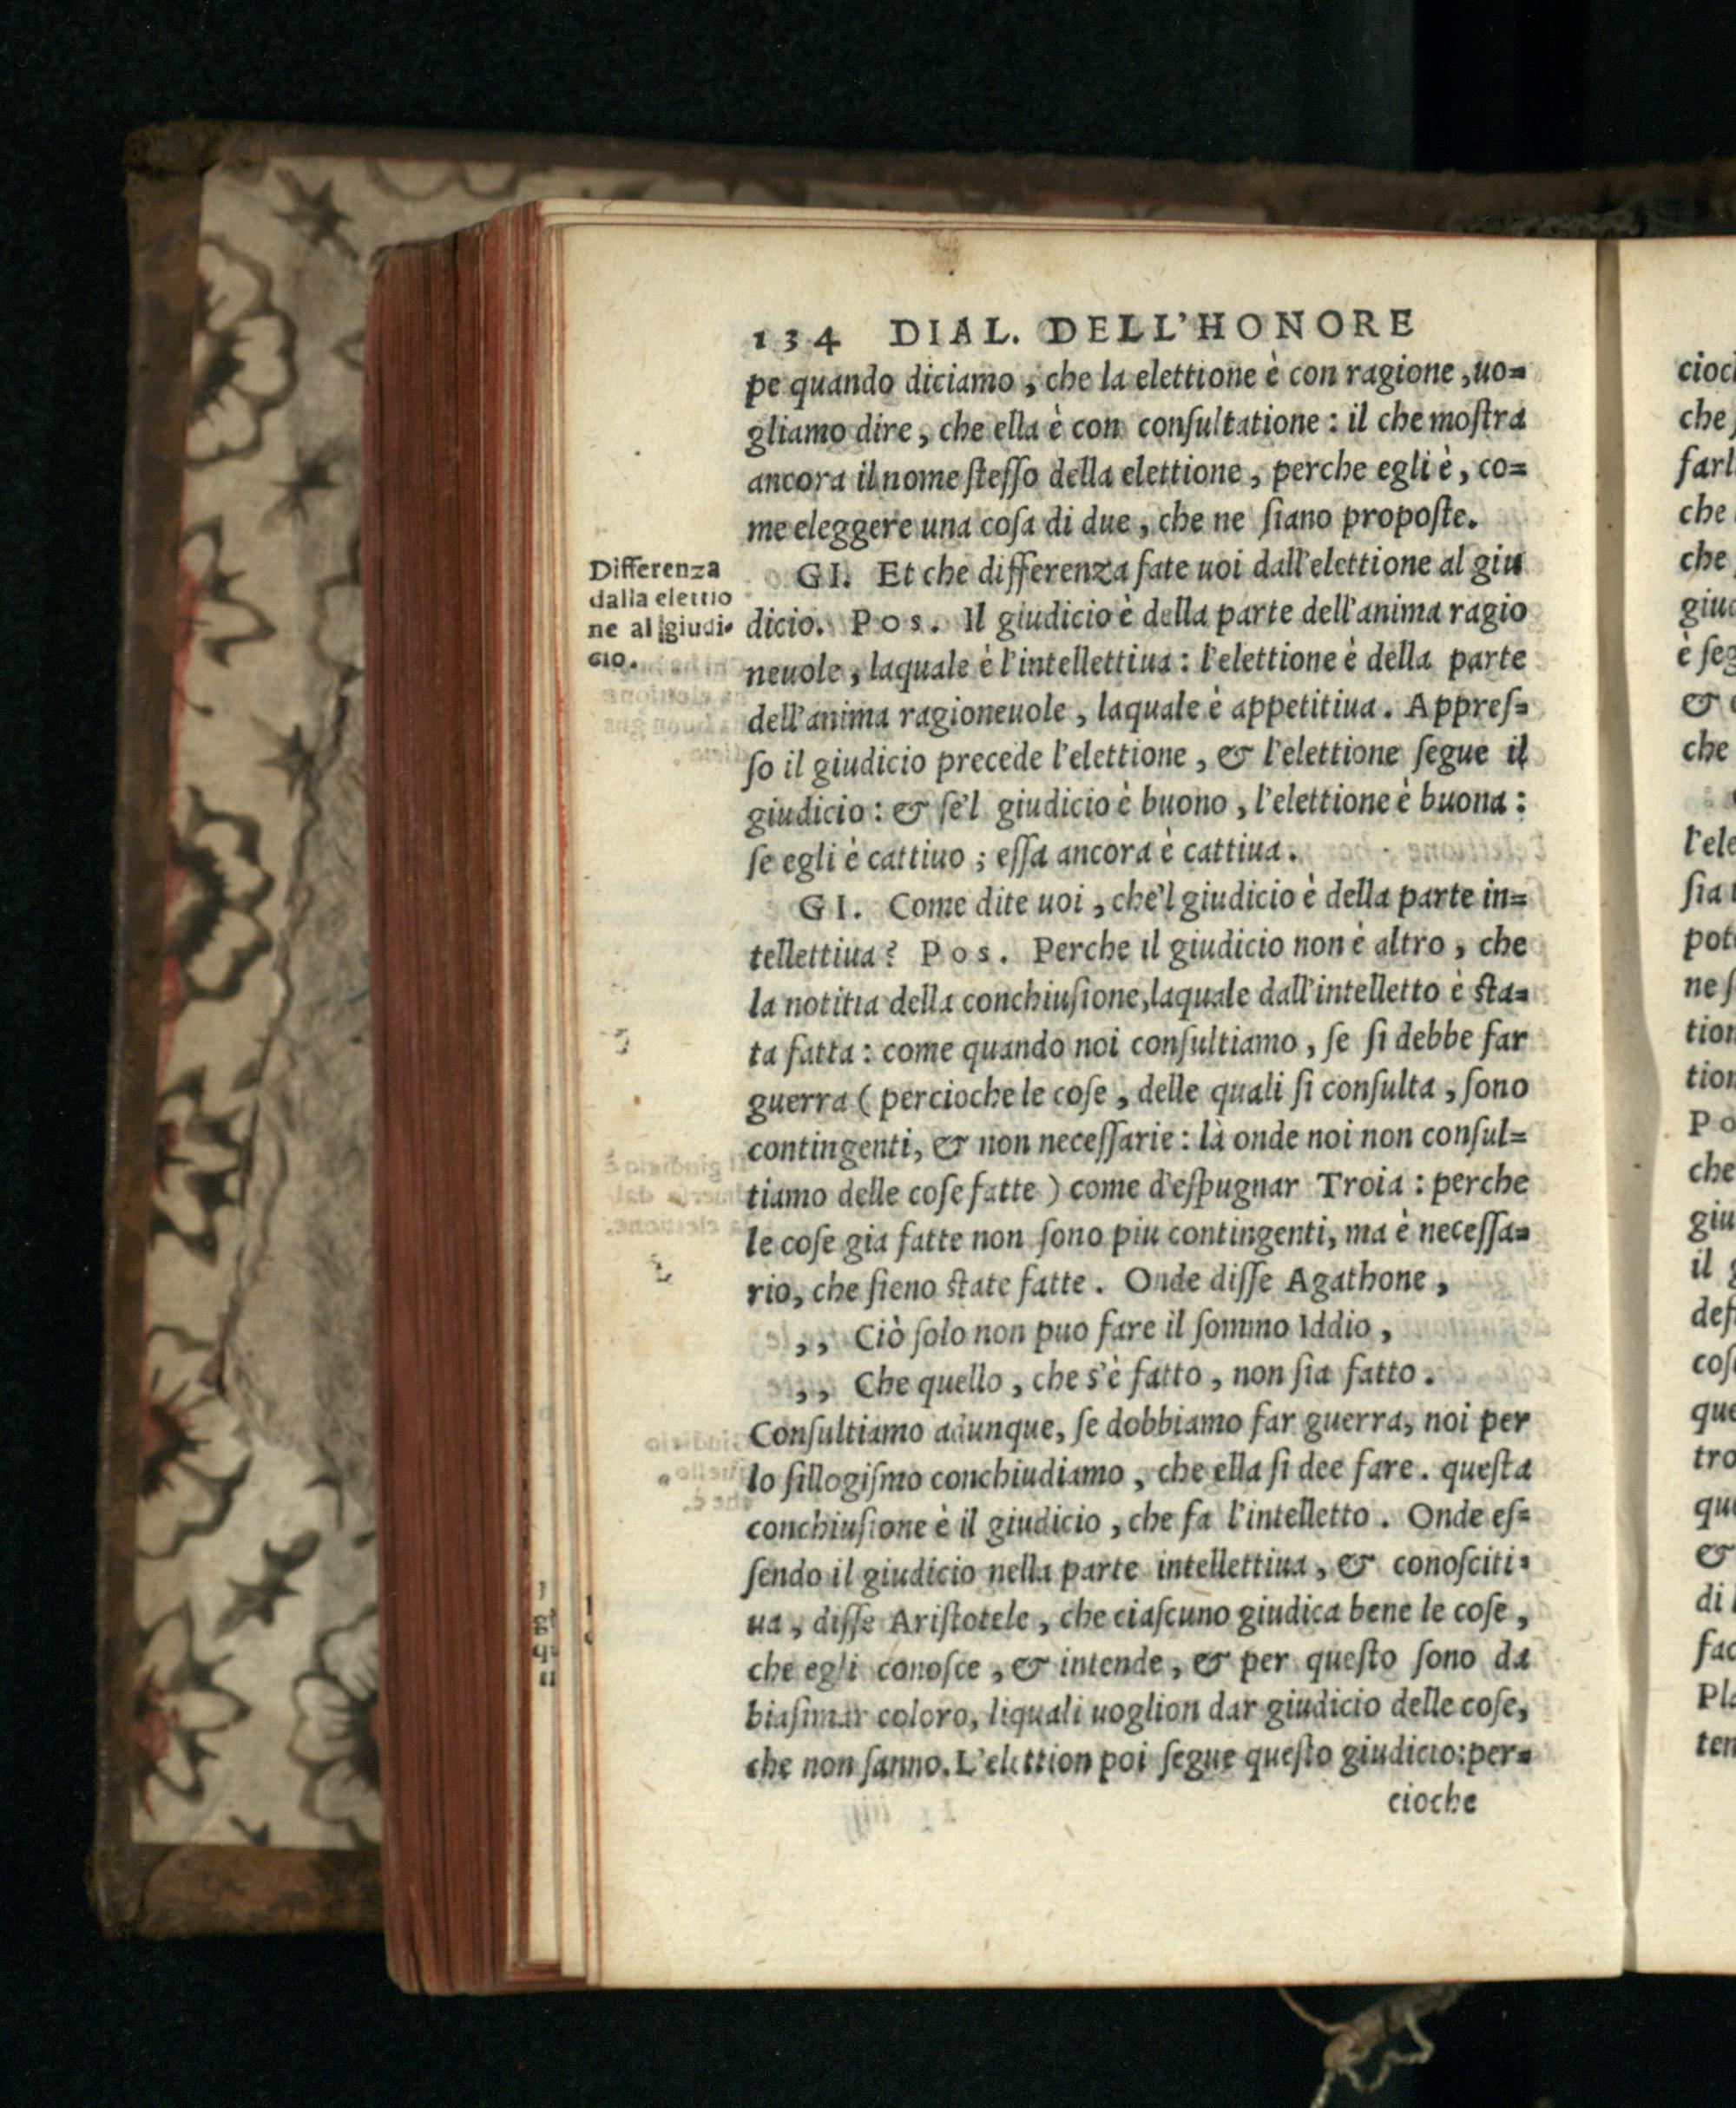 134 DIAL. DELL'HONORE
pe quando diciamo, che la elettione è con ragione, uo=
gliamo dire, che ella è con conſultatione: il che moſtra
ancora il nome ſteſſo della elettione, perche egli è, co=
me eleggere una coſa di due, che ne ſiano propoſte.
Differenza
dalla elettio
ne al giudi-
cio.
GI. Et che differenza fate uoi dall'elettione al giu
dicio. Pos. Il giudicio è della parte dell'anima ragio
neuole, laquale è l'intellettiua: l'elettione è della parte
dell'anima ragioneuole, laquale è appetitiua. Appreſ=
ſo il giudicio precede l'elettione, & l'elettione ſegue il
giudicio: & ſe'l giudicio è buono, l'elettione è buona:
ſe egli è cattiuo; eſſa ancora è cattiua.
GI. Come dite uoi, che'l giudicio è della parte in=
tellettiua? Pos. Perche il giudicio non è altro, che
la notitia della conchiuſione, laquale dall'intelletto è ſta=
ta fatta: come quando noi conſultiamo, ſe ſi debbe far
guerra (percioche le coſe, delle quali ſi conſulta, ſono
contingenti, & non neceſſarie: là onde noi non conſul=
tiamo delle coſe fatte) come d'eſpugnar Troia: perche
le coſe gia fatte non ſono piu contingenti, ma è neceſſa=
rio, che ſieno ſtate fatte. Onde diſſe Agathone,
,, Ciò ſolo non puo fare il ſommo Iddio,
,, Che quello, che s'è fatto, non ſia fatto.
Conſultiamo adunque, ſe dobbiamo far guerra, noi per
lo ſillogiſmo conchiudiamo, che ella ſi dee fare. queſta
conchiuſione è il giudicio, che fa l'intelletto. Onde eſ=
ſendo il giudicio nella parte intellettiua, & conoſciti=
ua, diſſe Ariſtotele, che ciaſcuno giudica bene le coſe,
che egli conoſce, & intende, & per queſto ſono da
biaſimar coloro, liquali uoglion dar giudicio delle coſe,
che non ſanno. L'elettion poi ſegue queſto giudicio: per=
cioche